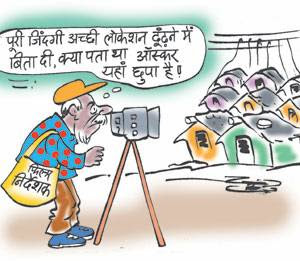 पूरी जिंदगी अच्छी लोकेशन ढूंढने में
बिता दी, क्या पता था ऑस्कर
यहाँ छुपा है!
फिल्म
निर्देशक